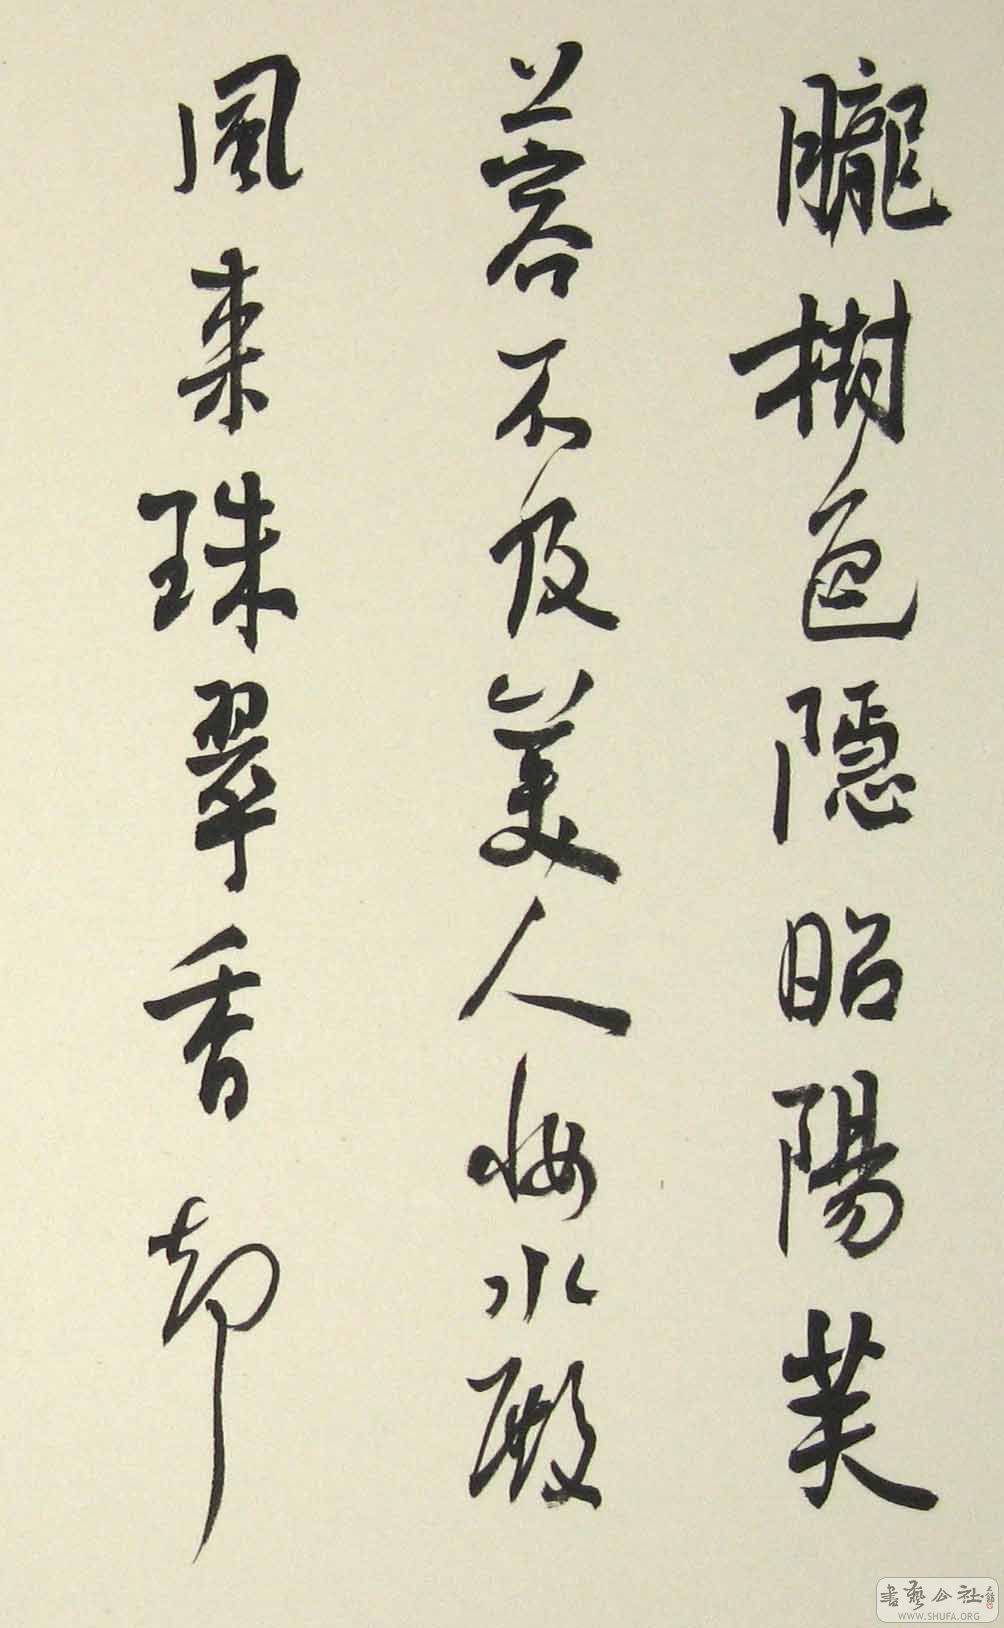 朧樹色隱昭陽芙
蓉不及美人妝水殿
風來珠翠香却
書藝公社
WWW.SHUFA.ORG